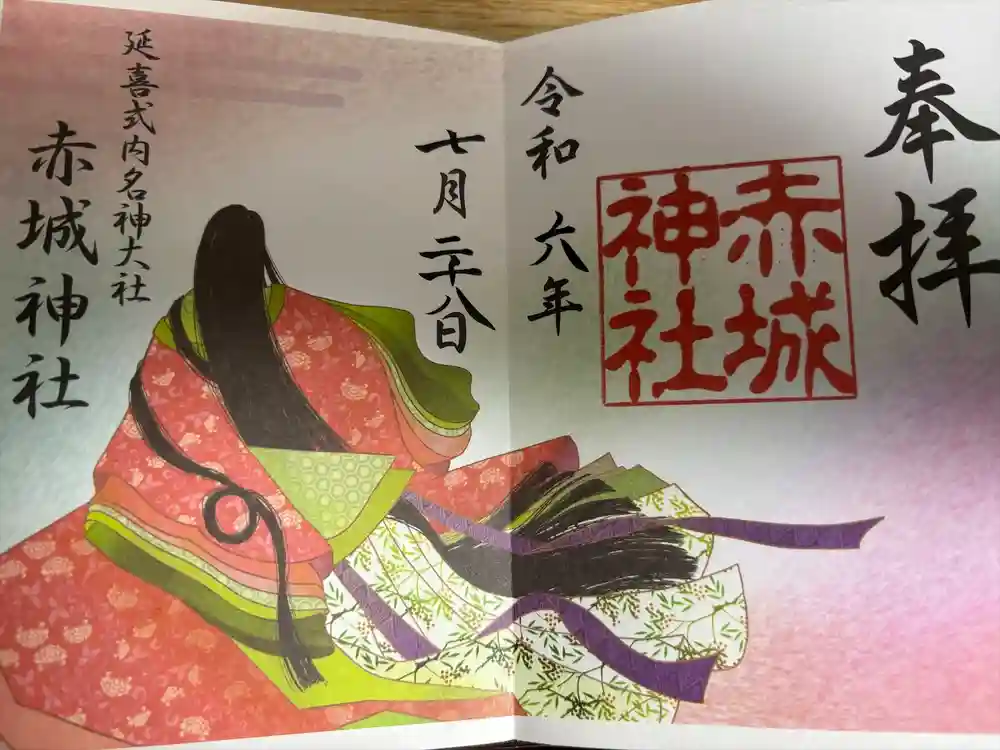 奉拝
赤城
神社
令和 六年
七月二十八日
延喜式内名神大社
赤城神社